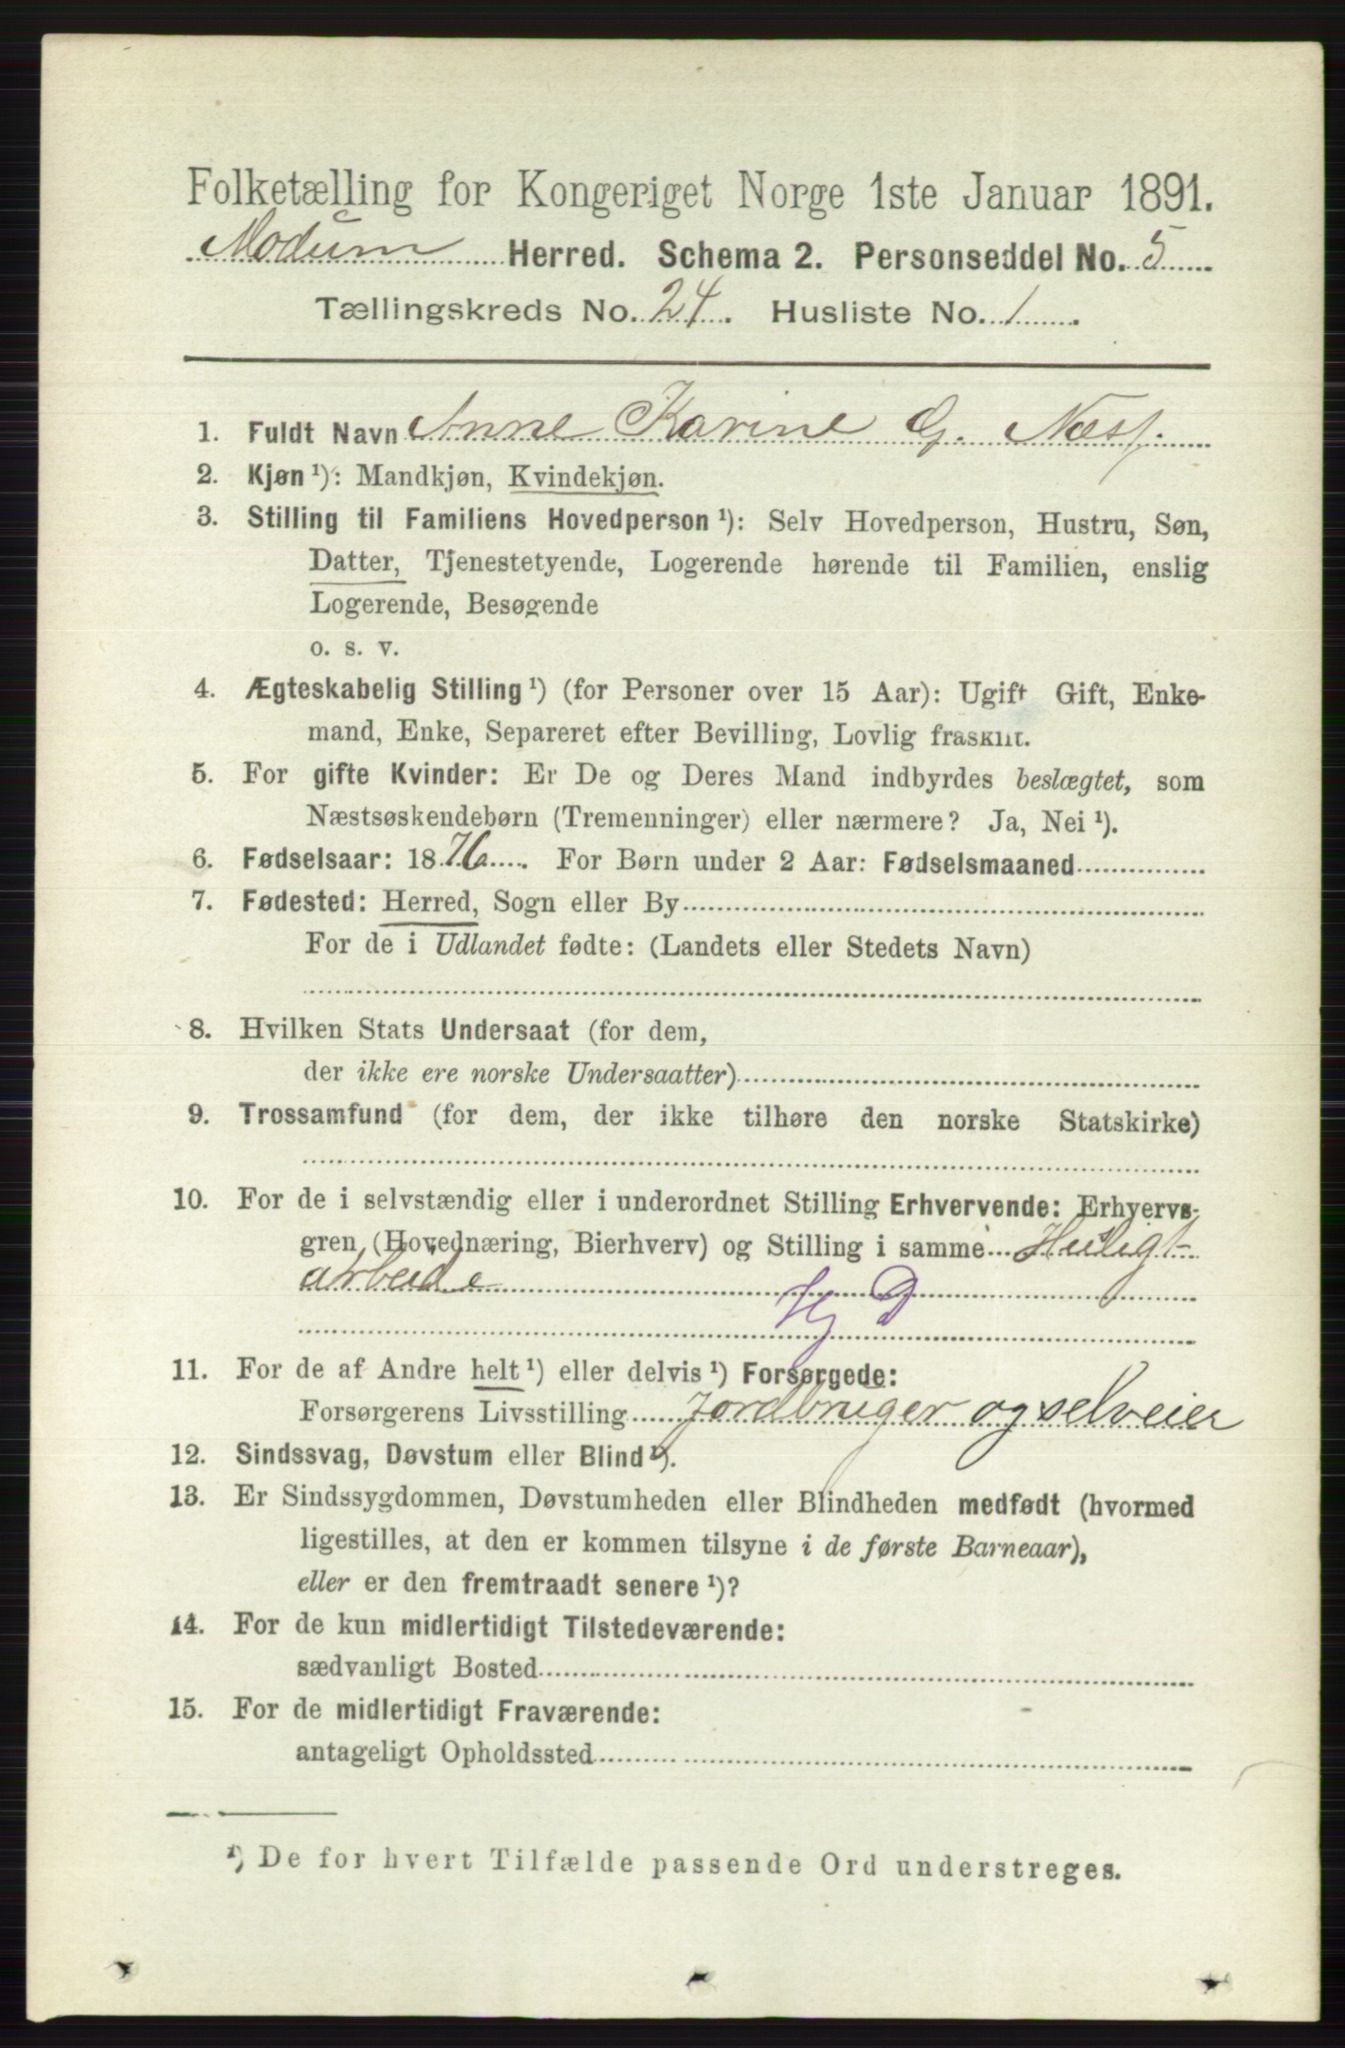 Folketælling for Kongeriget Norge 1ste Januar 1891.
Modum Herred. Schema 2. Personseddel No. 5
Tællingskreds No. 24. Husliste No. 1
1. Fuldt Navn Anne Karine G. Næss.
2. Kjøn ¹): Mandkjøn, Kvindekjøn.
3. Stilling til Familiens Hovedperson ¹): Selv Hovedperson, Hustru, Søn,
Datter, Tjenestetyende, Logerende hørende til Familien, enslig
Logerende, Besøgende
o. s. v.
4. Ægteskabelig Stilling ¹) (for Personer over 15 Aar): Ugift Gift, Enke-
mand, Enke, Separeret efter Bevilling, Lovlig fraskilt.
5. For gifte Kvinder: Er De og Deres Mand indbyrdes beslægtet, som
Næstsøskendebørn (Tremenninger) eller nærmere? Ja, Nei ¹).
6. Fødselsaar: 1876. For Børn under 2 Aar: Fødselsmaaned
7. Fødested: Herred, Sogn eller By
For de i Udlandet fødte: (Landets eller Stedets Navn)
8. Hvilken Stats Undersaat (for dem,
der ikke ere norske Undersaatter)
9. Trossamfund (for dem, der ikke tilhøre den norske Statskirke)
10. For de i selvstændig eller i underordnet Stilling Erhvervende: Erhvervs-
gren (Hovednæring, Bierhverv) og Stilling i samme Husligt
arbeide
Hj D
11. For de af Andre helt ¹) eller delvis ¹) Forsørgede:
Forsørgerens Livsstilling Jordbruger og selveier
12. Sindssvag, Døvstum eller Blind ¹).
13. Er Sindssygdommen, Døvstumheden eller Blindheden medfødt (hvormed
ligestilles, at den er kommen tilsyne i de første Barneaar),
eller er den fremtraadt senere ¹)?
14. For de kun midlertidigt Tilstedeværende:
sædvanligt Bosted
15. For de midlertidigt Fraværende:
antageligt Opholdssted
¹) De for hvert Tilfælde passende Ord understreges.